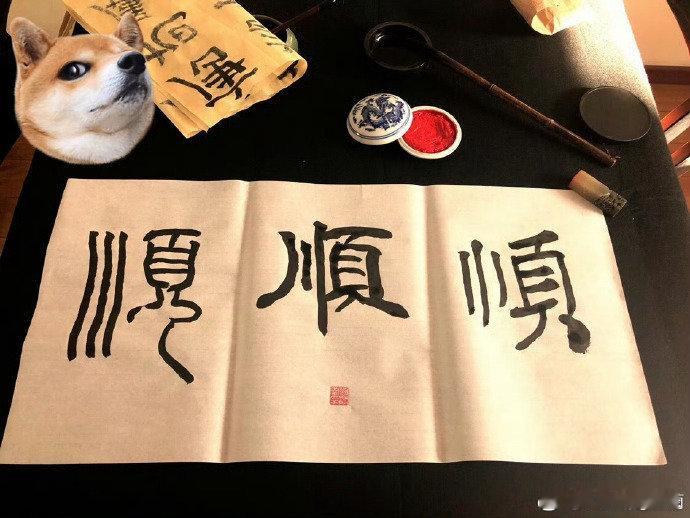 順順順